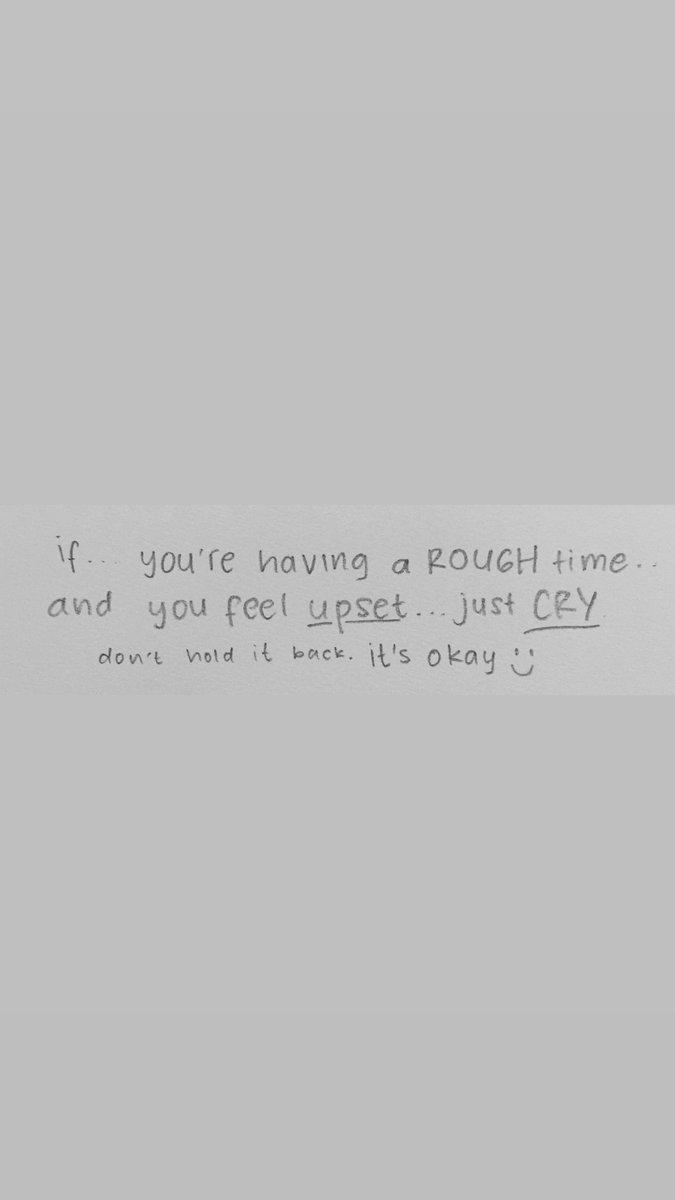 if... you're having a ROUGH time..
and you feel upset... just CRY.
don't hold it back. it's okay :)